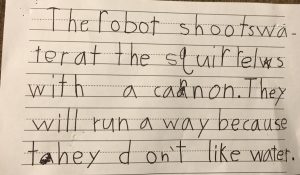 The robot shootswa-
terat the squirrelws
with a cannon. They
will run a way because
tahey don't like water.